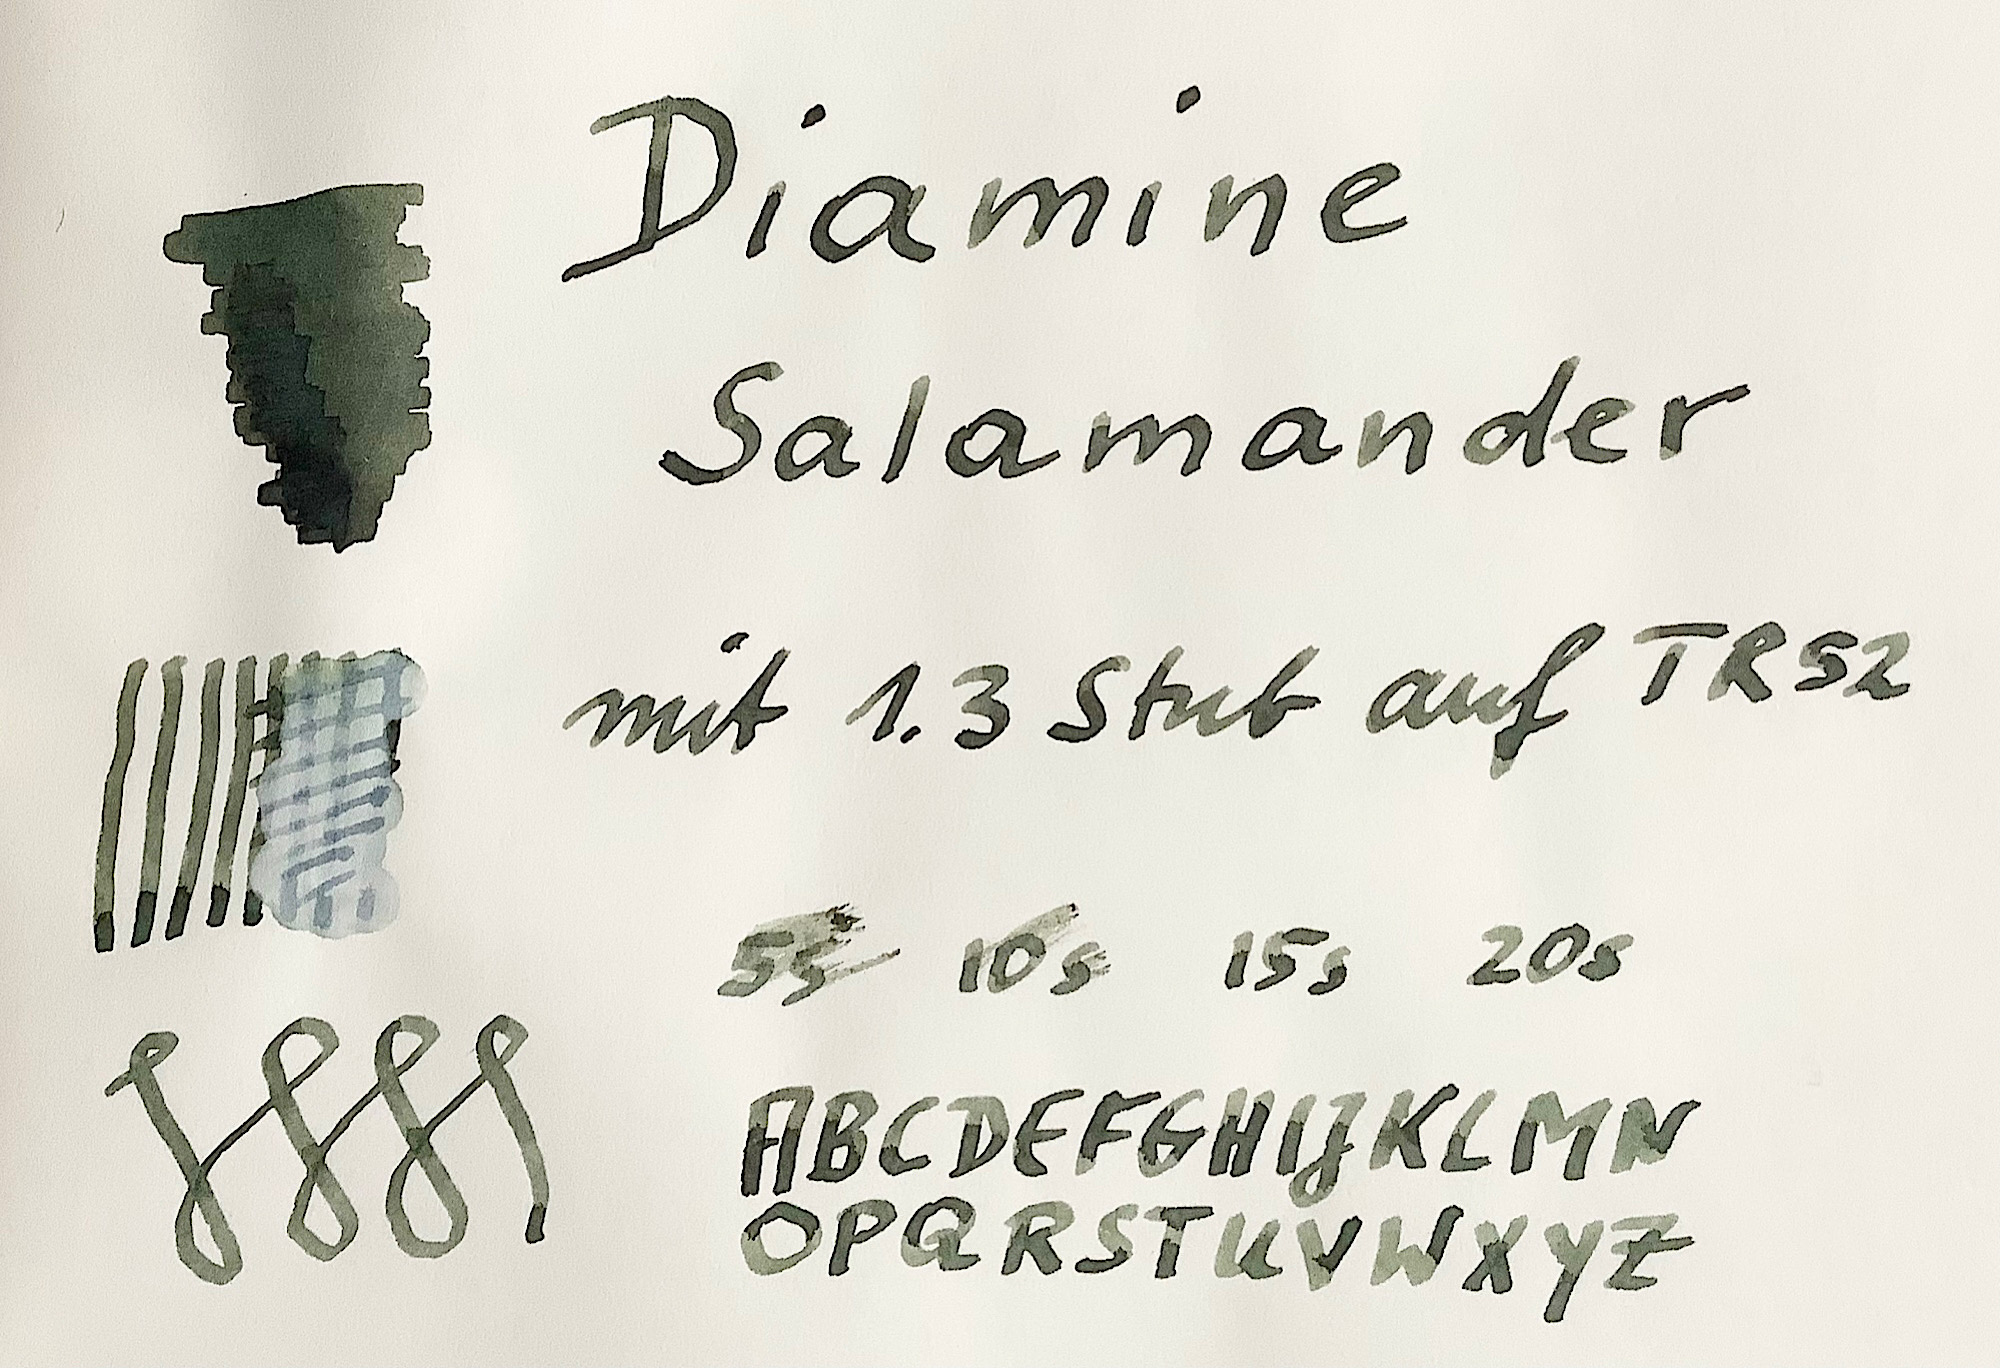 Diamine
Salamander
mit 1.3 Stub auf TR52
5s 10s 15s 20s
ABCDEFGHIJKLMN
OPQRSTUVWXYZ